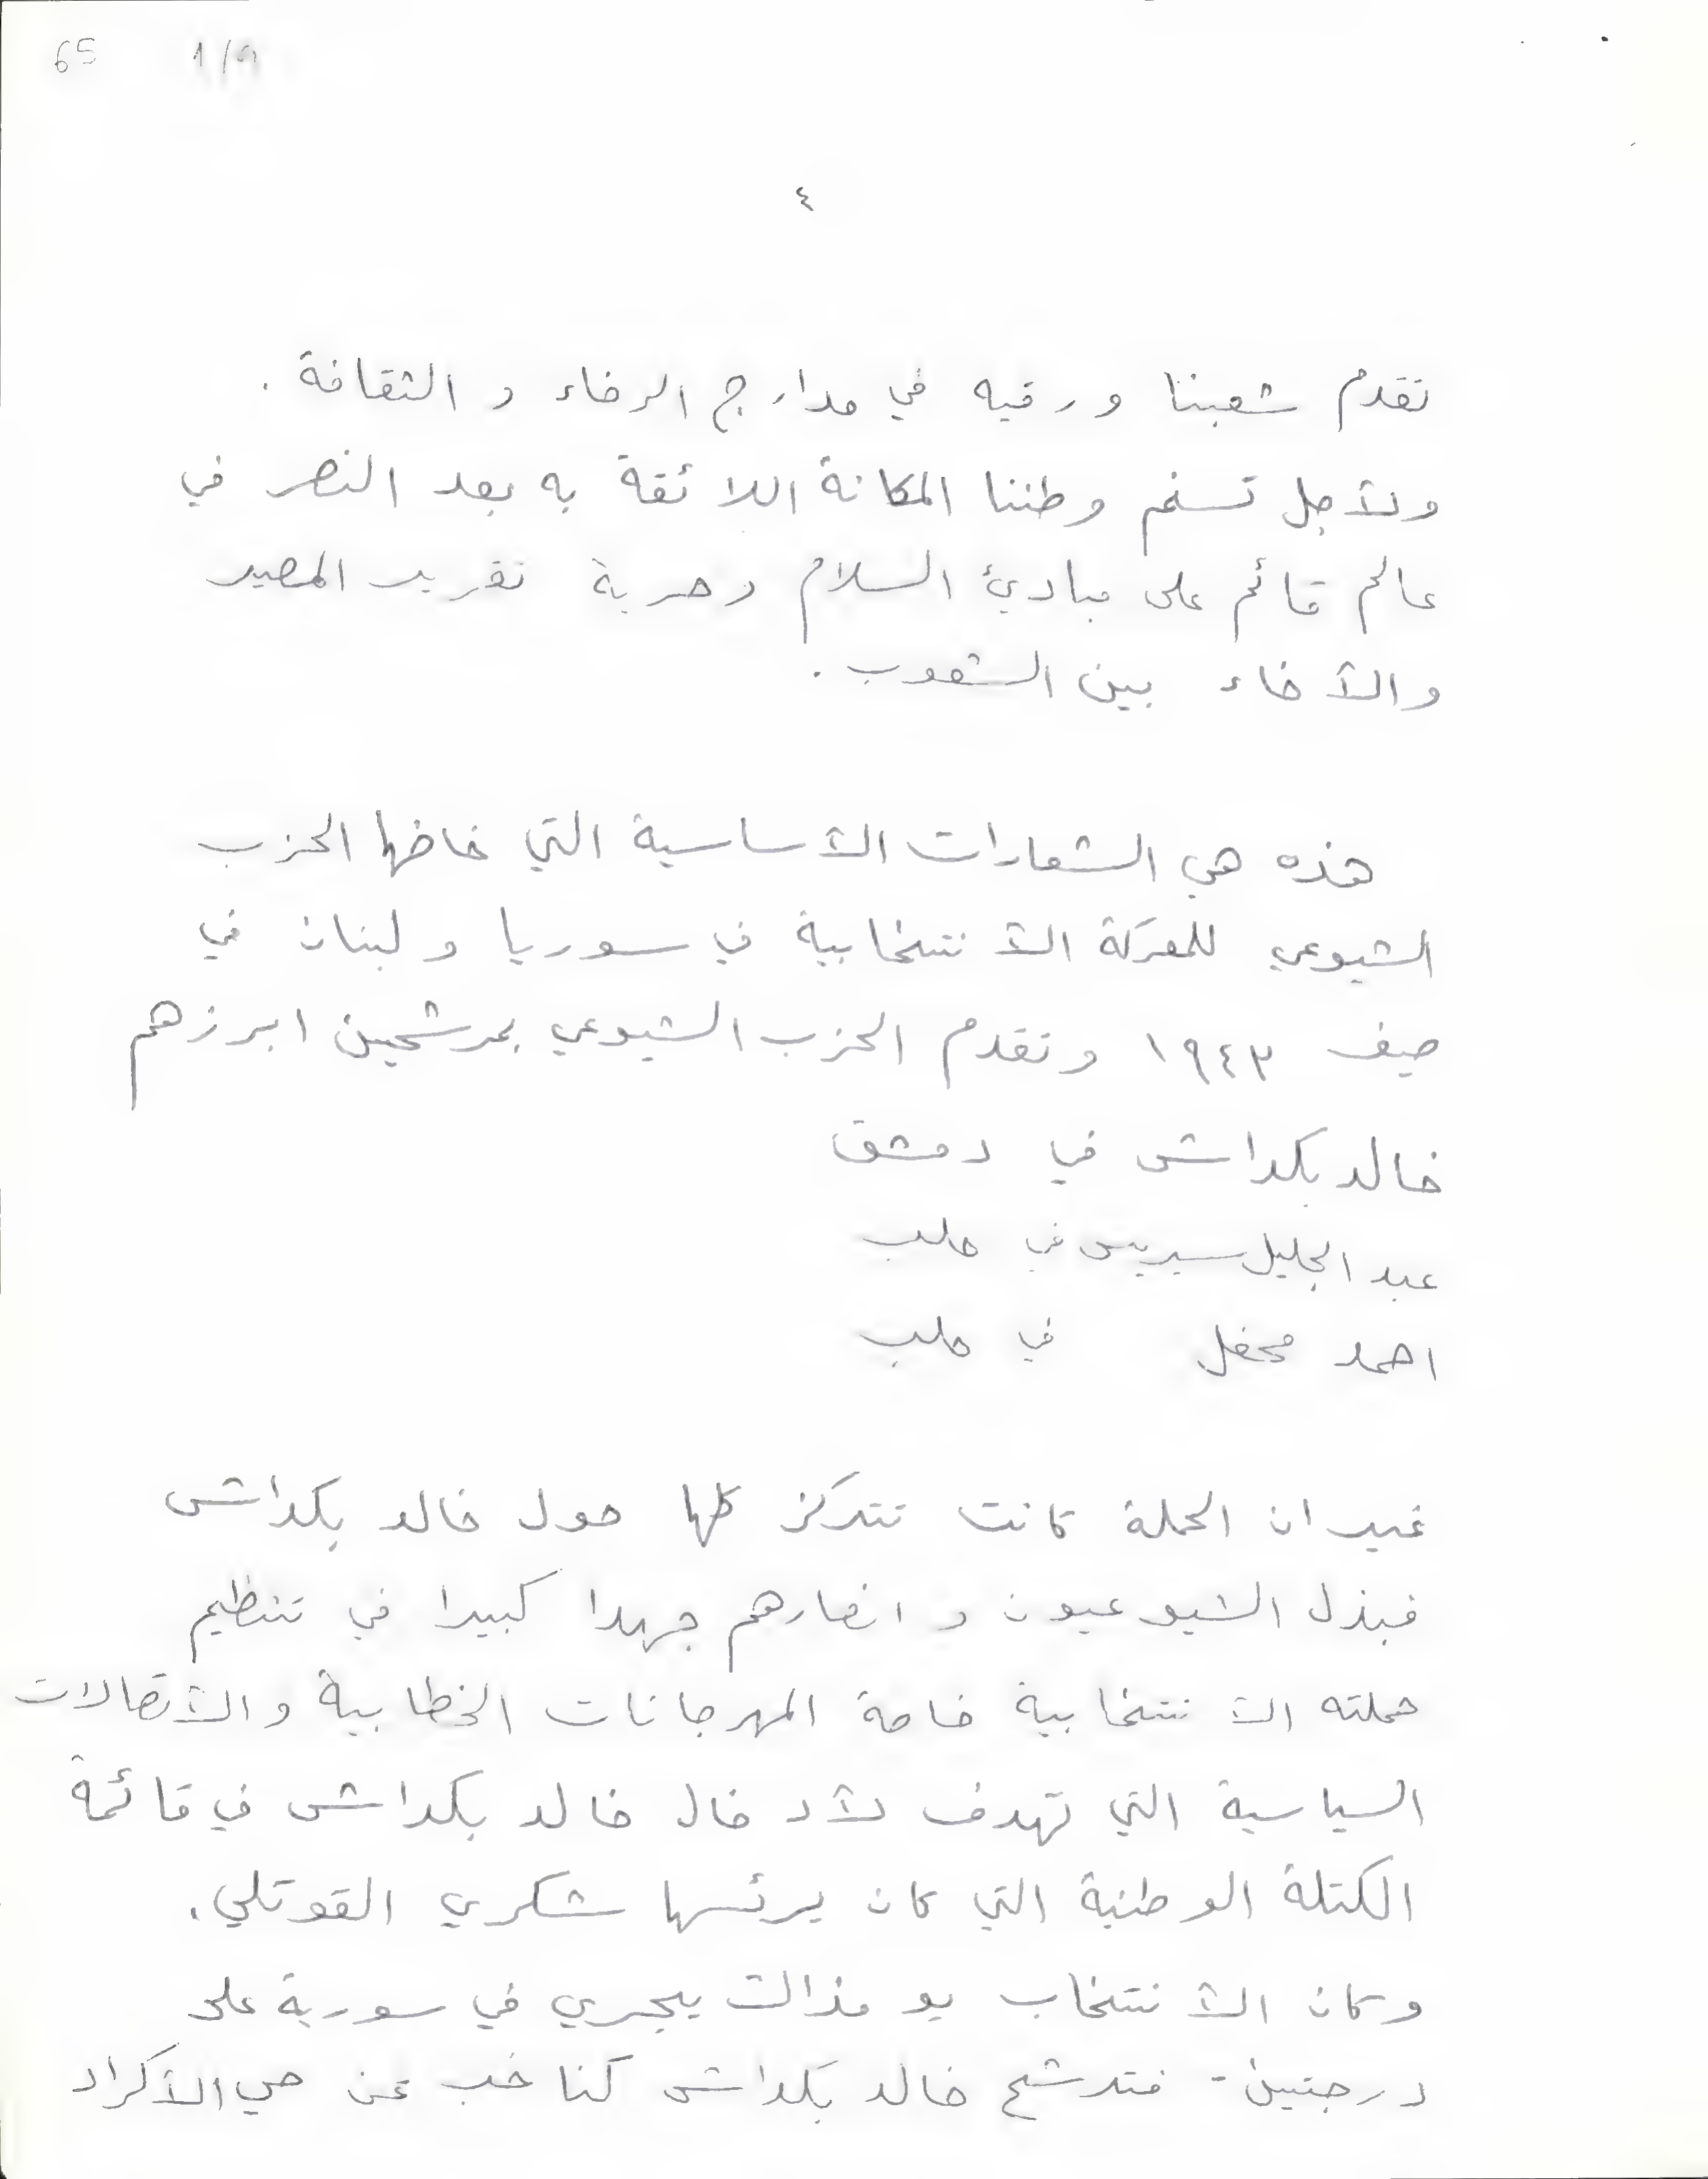 65 1/9
٤
تقدم شعبنا ورقيه في مدارج الرخاء والثقافة .
ولأجل تسنم وطننا المكانة اللائقة به بعد النصر في
عالم قائم على مبادئ السلام وحرية تقرير المصير
والأخاء بين الشعوب .
هذه هي الشعارات الأساسية التي خاضها الحزب
الشيوعي للمعركة الأنتخابية في سوريا ولبنان في
صيف ١٩٤٣ وتقدم الحزب الشيوعي بمرشحين ابرزهم
خالد بكداش في دمشق
عبد الجليل سيريس في حلب
احمد محفل في حلب
غير ان الحملة كانت تتركز كلها حول خالد بكداش
فبذل الشيوعيون وانصارهم جهدا كبيرا في تنظيم
حملته الأنتخابية خاصة المهرجانات الخطابية والأتصالات
السياسية التي تهدف لأدخال خالد بكداش في قائمة
الكتلة الوطنية التي كان يرئسها شكري القوتلي .
وكان الأنتخاب يومذاك يجري في سورية على
درجتين - فترشح خالد بكداش كناخب عن حي الأكراد